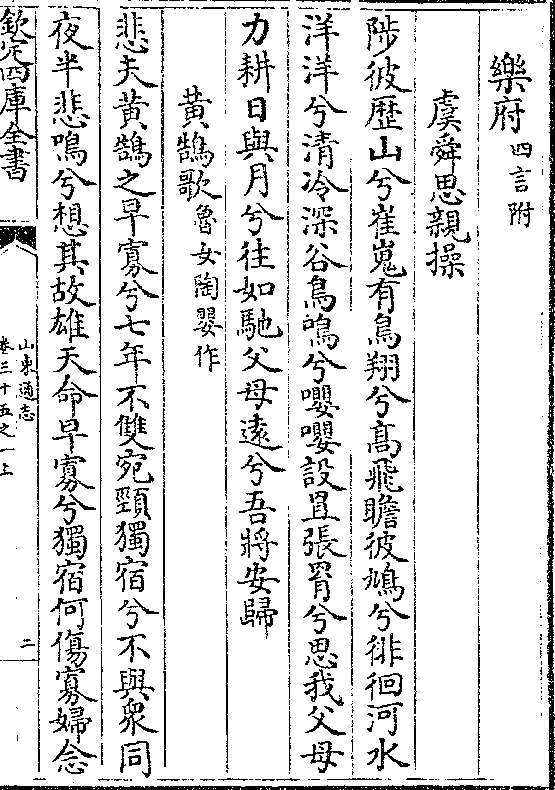 樂府四言附
虞舜思親操
陟彼歴山兮崔嵬有鳥翔兮髙飛瞻彼鳩兮徘徊河水
洋洋兮清冷深谷鳥鳴兮嚶嚶設罝張罥兮思我父母
力耕日與月兮往如馳父母逺兮吾將安歸
黄鵠歌魯女陶嬰作
悲夫黄鵠之早寡兮七年不雙宛頸獨宿兮不與衆同
夜半悲鳴兮想其故雄天命早寡兮獨宿何傷寡婦念
欽定四庫全書
山東通志
卷三十五之一上
二